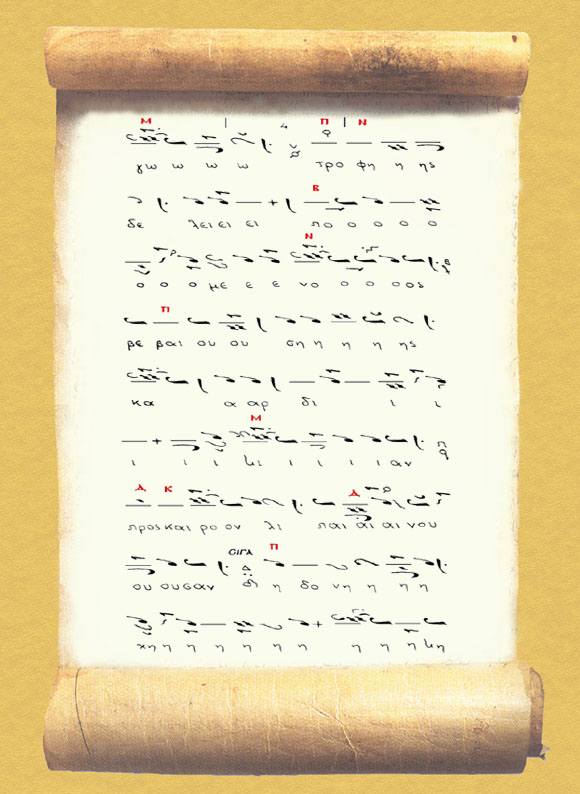 Μ Π Ν
γω ω ω ω τρο φη η ης
Β
δε λει ει ει πο ο ο ο ο
Ν
ο ο ο με ε ε νο ο ο οος
Π
βε βαι ου ου ση η η η ης
κα α αρ δι ι ι
Μ
ι ι ι κι ι ι ι ι αν
Δ Κ Δ
προς και ρο ον λι παι αι αι νου
ΟΙΓΑ Π
ου ουσαν δι η δο νη η η η
χη η η η η η η η η η κη